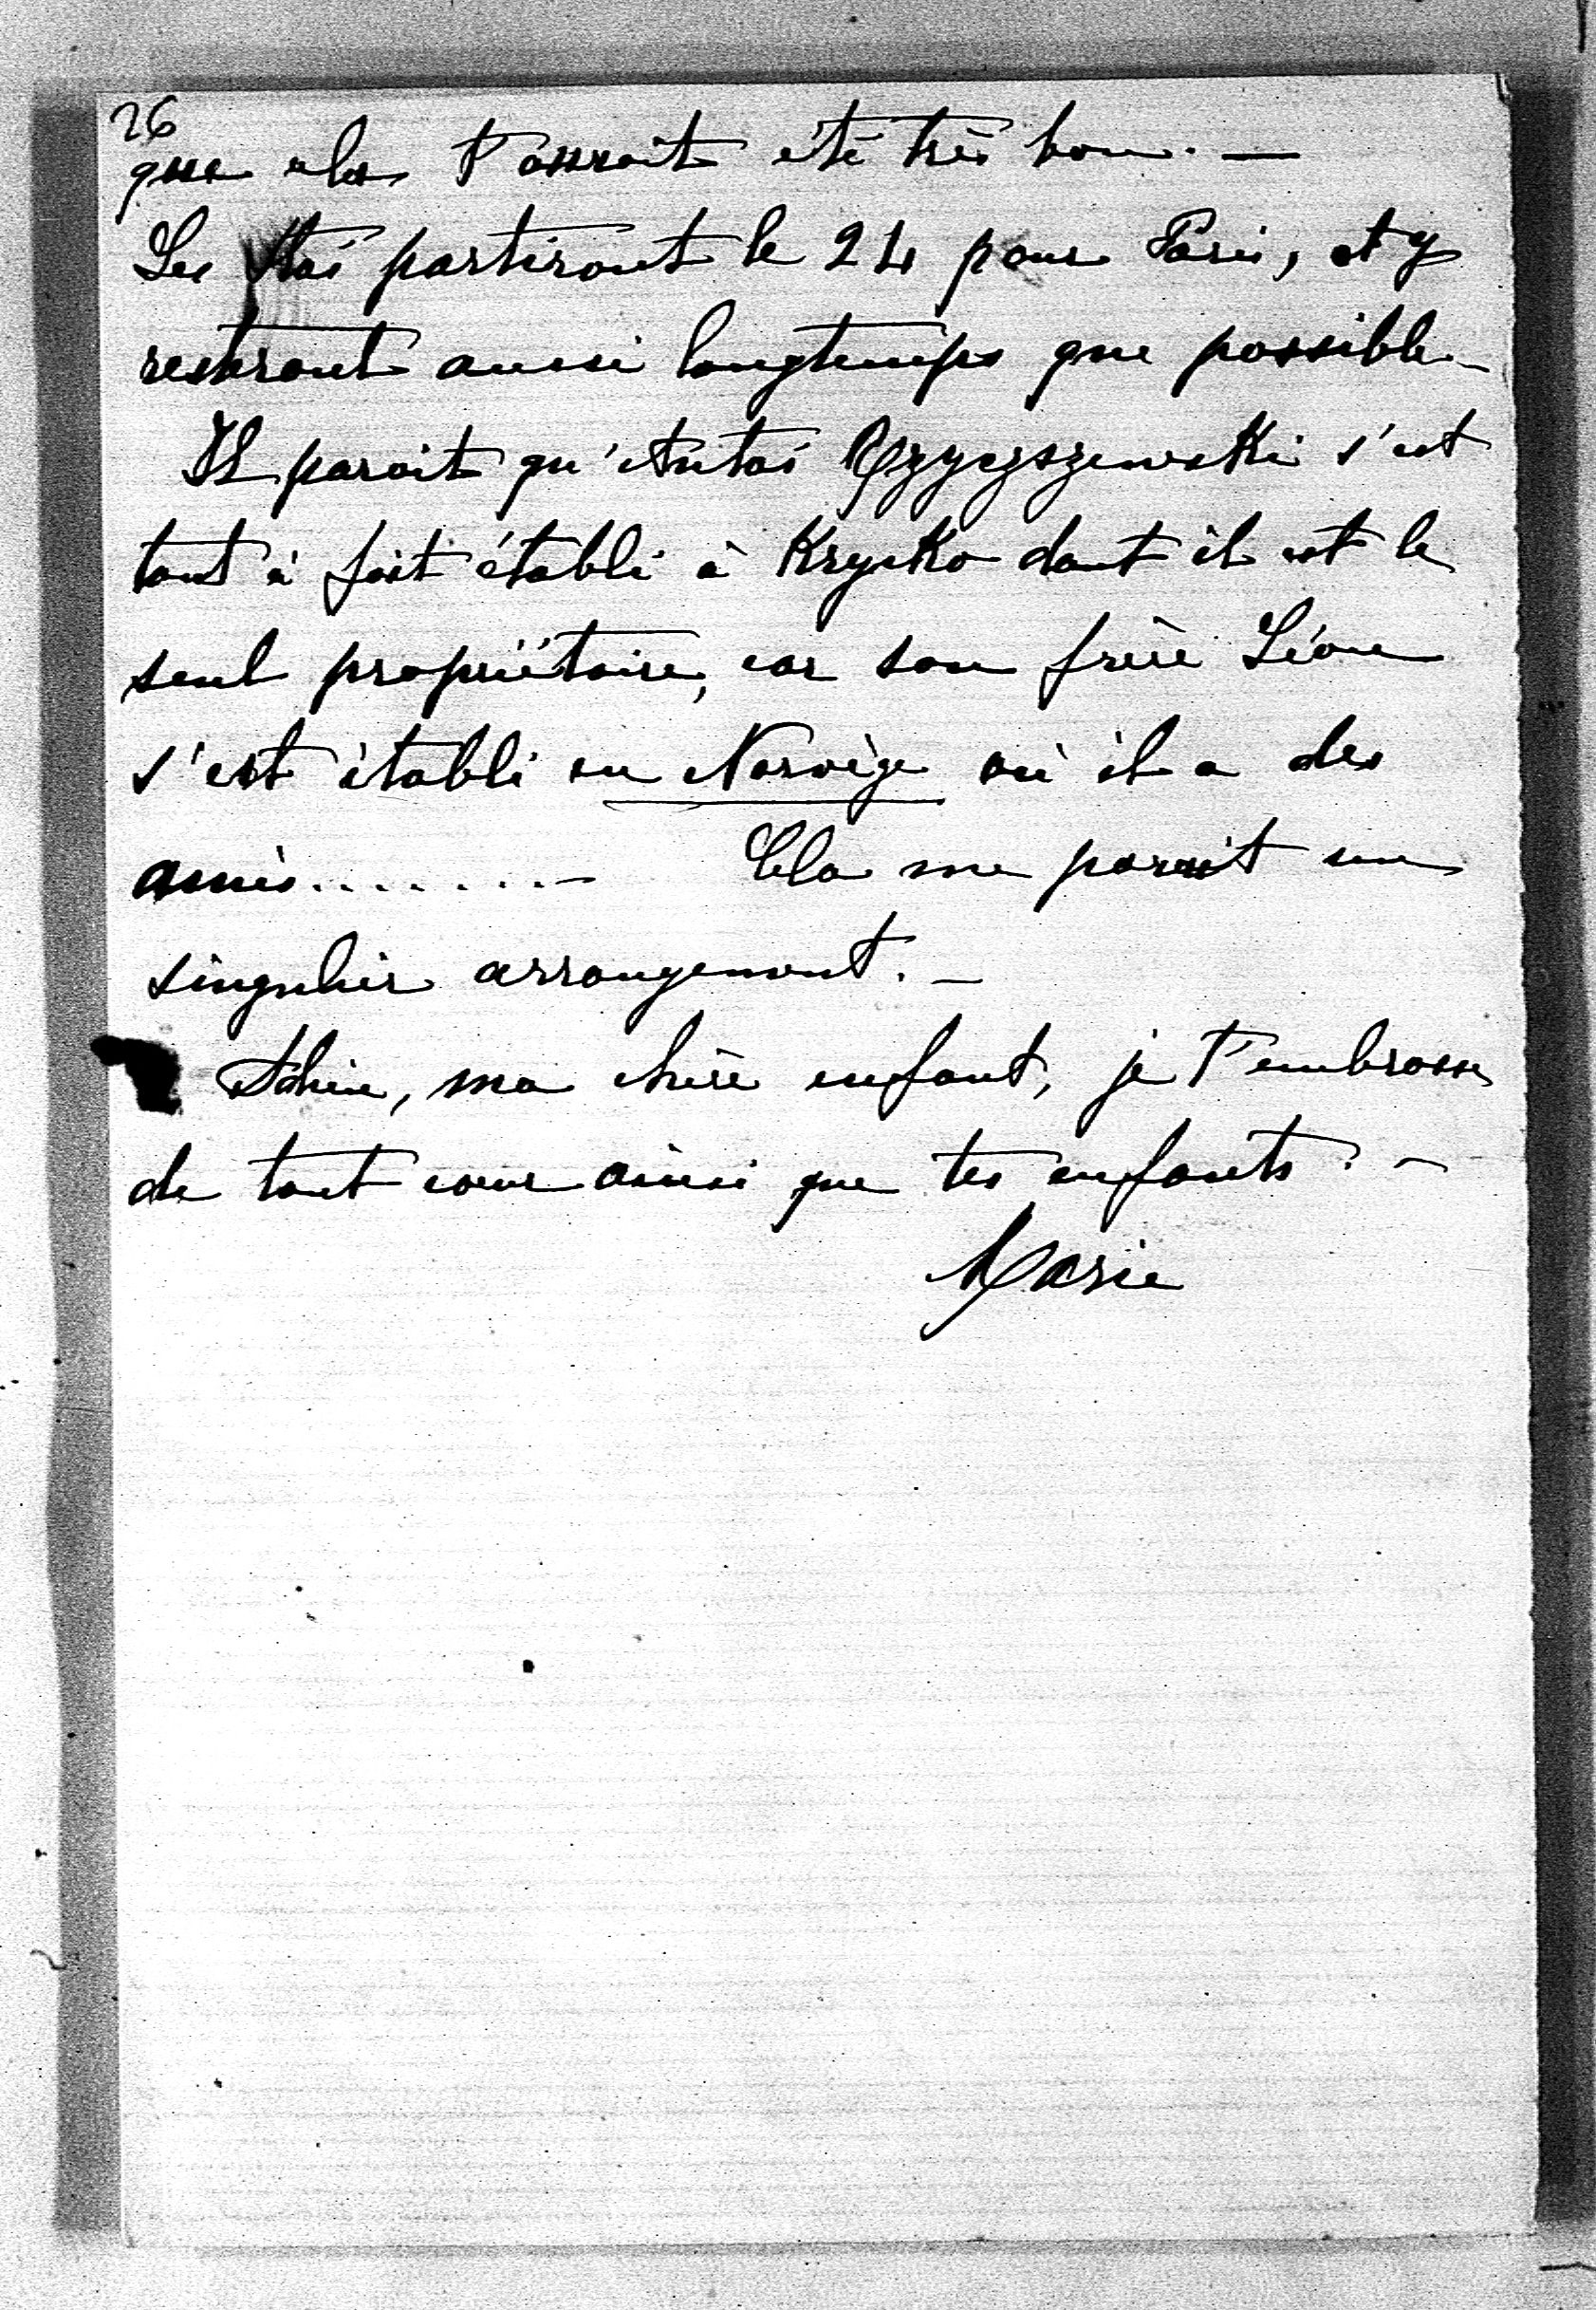 26
que cela t'aurait été très bon. —
Les Staś partiront le 24 pour Paris, et y
resteront aussi longtemps que possible —
Il parait qu'Antoś s'est
tout à fait établi à Krycko dont il est le
seul propriétaire, car son frère Léon
s'est établi en Norvège où il a des
amis....... — Cela me parait un
singulier arrangement. —
Adieu, ma chère enfant, je t'embrasse
de tout cœur ainsi que tes enfants. —
Marie